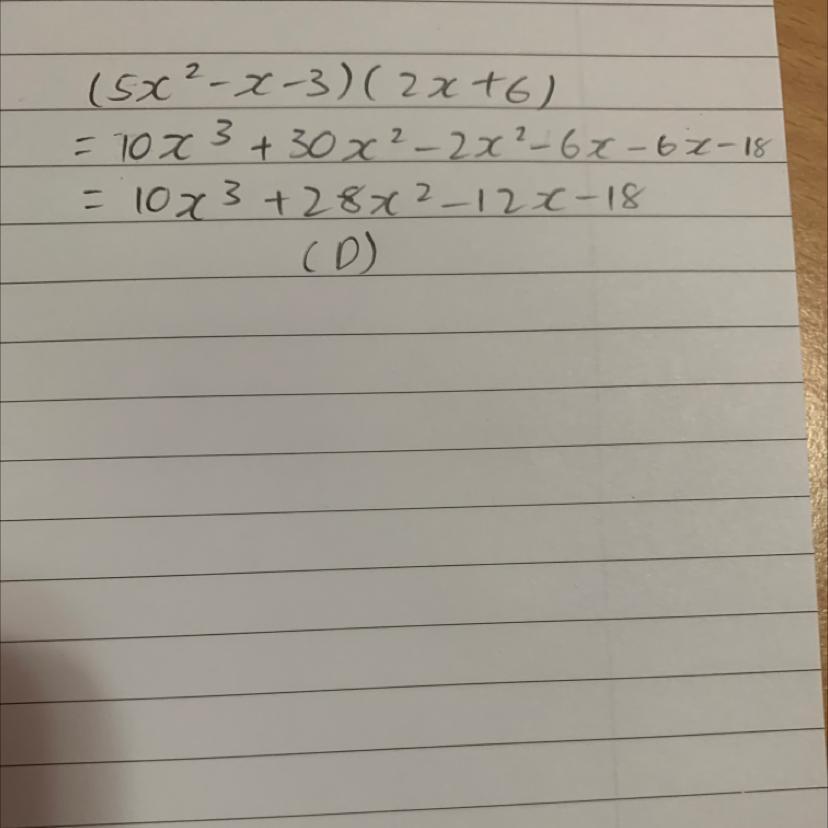 (5x²-x-3)(2x+6)
= 10x³ + 30x² - 2x² - 6x - 6x - 18
= 10x³ + 28x² - 12x - 18
(D)